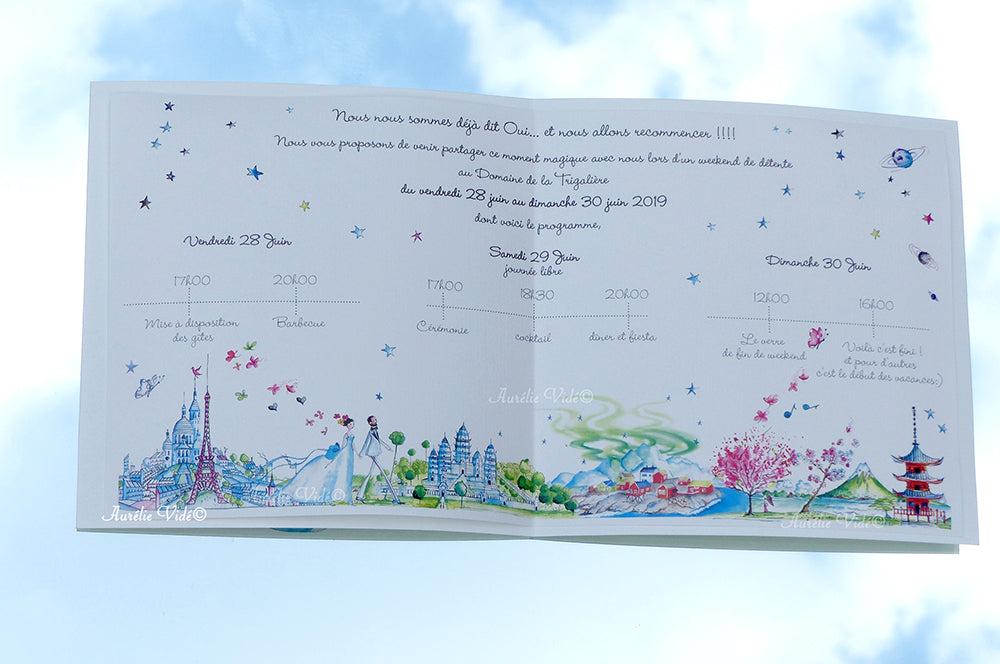 Nous nous sommes déjà dit Oui... et nous allons recommencer !!!!
Nous vous proposons de venir partager ce moment magique avec nous lors d'un weekend de détente
au Domaine de la Trigalière
du vendredi 28 juin au dimanche 30 juin 2019
dont voici le programme,
Vendredi 28 Juin
17h00
20h00
Mise à disposition
des gîtes
Barbecue
Samedi 29 Juin
journée libre
17h00
18h30
20h00
Cérémonie
cocktail
diner et fiesta
Dimanche 30 Juin
12h00
16h00
Le verre
de fin de weekend
Voilà c'est fini !
et pour d'autres
c'est le début des vacances:)
Aurélie Vidé©
Aurélie Vidé©
Aurélie Vidé©
Aurélie Vidé©